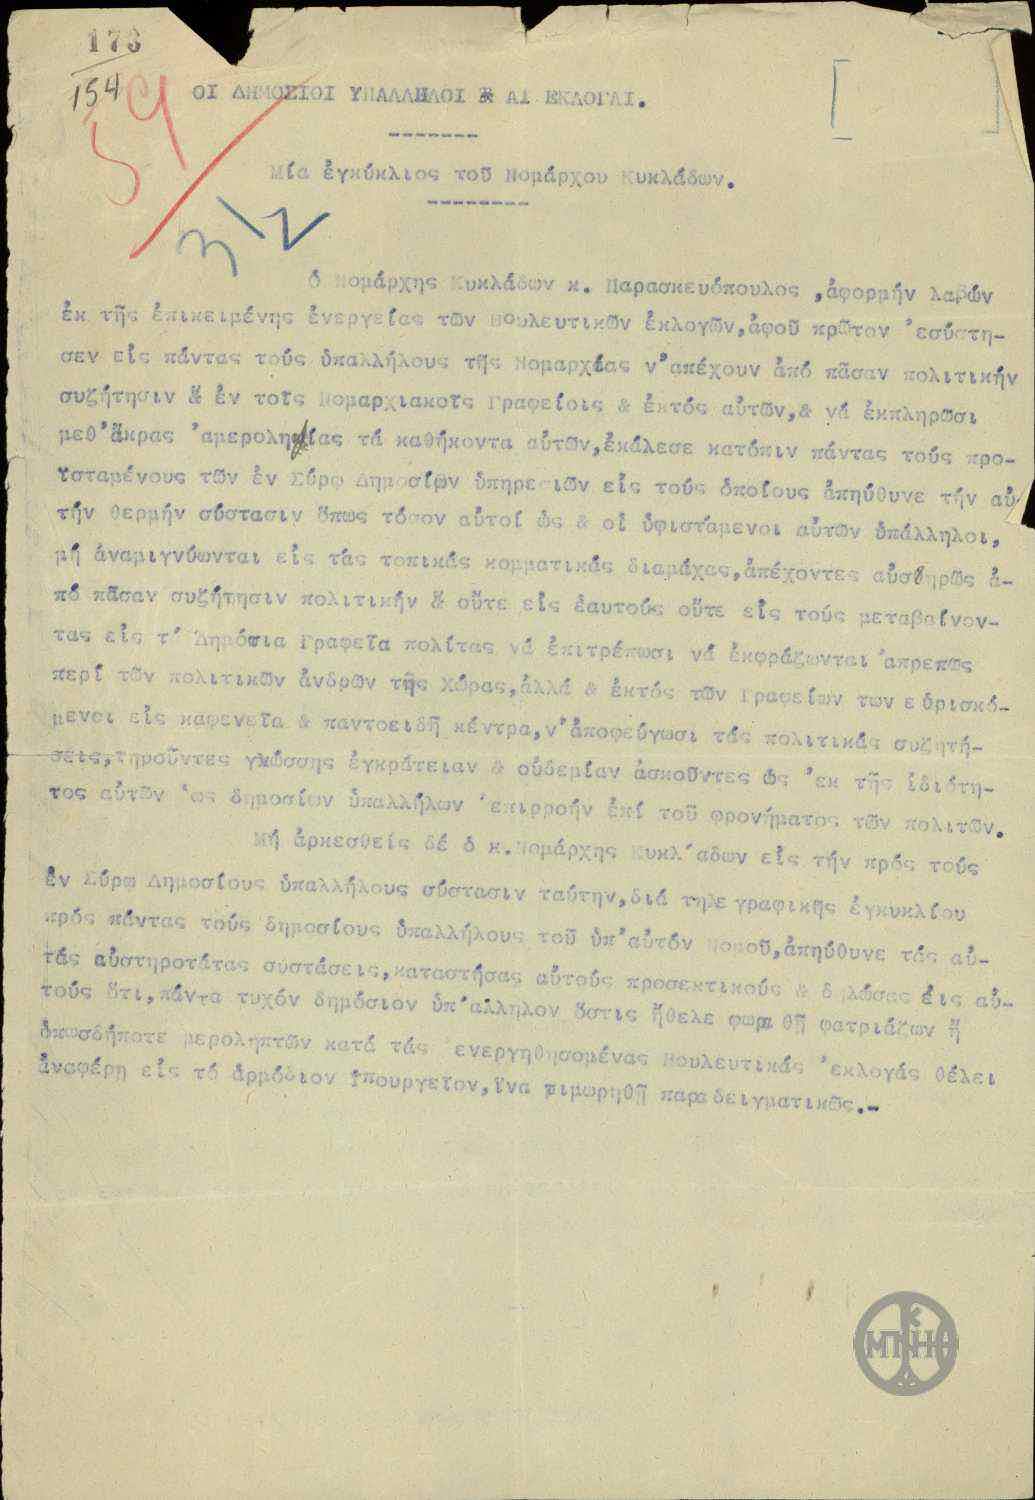 173
154
59
3/2
ΟΙ ΔΗΜΟΣΙΟΙ ΥΠΑΛΛΗΛΟΙ & ΑΙ ΕΚΛΟΓΑΙ.
Μία ἐγκύκλιος τοῦ Νομάρχου Κυκλάδων.
ὁ Νομάρχης Κυκλάδων κ. Παρασκευόπουλος ,ἀφορμήν λαβών
ἐκ τῆς ἐπικειμένης ἐνεργείας τῶν Βουλευτικῶν ἐκλογῶν,ἀφοῦ πρῶτον 'εσύστη-
σεν εἰς πάντας τούς ὑπαλλήλους τῆς Νομαρχίας ν'ἀπέχουν ἀπό πᾶσαν πολιτικήν
συζήτησιν & ἐν τοῖς Νομαρχιακοῖς Γραφείοις & ἐκτός αὐτῶν,& νά ἐκπληρῶσι
μεθ'ἄκρας 'αμεροληψίας τά καθήκοντα αὐτῶν,ἐκάλεσε κατόπιν πάντας τούς προ-
ϊσταμένους τῶν ἐν Σύρῳ Δημοσίων ὑπηρεσιῶν εἰς τούς ὁποίους ἀπηύθυνε τήν αὐ-
τήν θερμήν σύστασιν ὅπως τόσον αὐτοί ὡς & οἱ ὑφιστάμενοι αὐτῶν ὑπάλληλοι,
μή ἀναμιγνύωνται εἰς τάς τοπικάς κομματικάς διαμάχας,ἀπέχοντες αὐστηρῶς ἀ-
πό πᾶσαν συζήτησιν πολιτικήν & οὔτε εἰς ἑαυτούς οὔτε εἰς τούς μεταβαίνον-
τας εἰς τ' Δημόσια Γραφεῖα πολίτας νά ἐπιτρέπωσι νά ἐκφράζωνται 'απρεπῶς
περί τῶν πολιτικῶν ἀνδρῶν τῆς Χώρας,ἀλλά & ἐκτός τῶν Γραφείων των εὑρισκό-
μενοι εἰς καφενεῖα & παντοειδῆ κέντρα,ν'ἀποφεύγωσι τάς πολιτικάς συζητή-
σεις,τηροῦντες γλώσσης ἐγκράτειαν & οὐδεμίαν ἀσκοῦντες ὡς 'εκ τῆς ἰδιότη-
τος αὐτῶν 'ως δημοσίων ὑπαλλήλων 'επιρροήν ἐπί τοῦ φρονήματος τῶν πολιτῶν.
Μή ἀρκεσθείς δέ ὁ κ.Νομάρχης Κυκλ'αδων εἰς τήν πρός τούς
ἐν Σύρῳ Δημοσίους ὑπαλλήλους σύστασιν ταύτην,διά τηλεγραφικῆς ἐγκυκλίου
πρός πάντας τούς δημοσίους ὑπαλλήλους τοῦ ὑπ'αὐτόν Νομοῦ,ἀπηύθυνε τάς αὐ-
τάς αὐστηροτάτας συστάσεις,καταστήσας αὐτούς προσεκτικούς & δηλώσας εἰς αὐ-
τούς ὅτι,πάντα τυχόν δημόσιον ὑπ'αλληλον ὅστις ἤθελε φωραθῆ φατριάζων ἤ
ὁπωσδήποτε μεροληπτῶν κατά τάς 'ενεργηθησομένας Βουλευτικάς 'εκλογάς θέλει
ἀναφέρῃ εἰς τό ἁρμόδιον Ὑπουργεῖον,ἵνα τιμωρηθῇ παραδειγματικῶς.-
ΜΠΚΗ